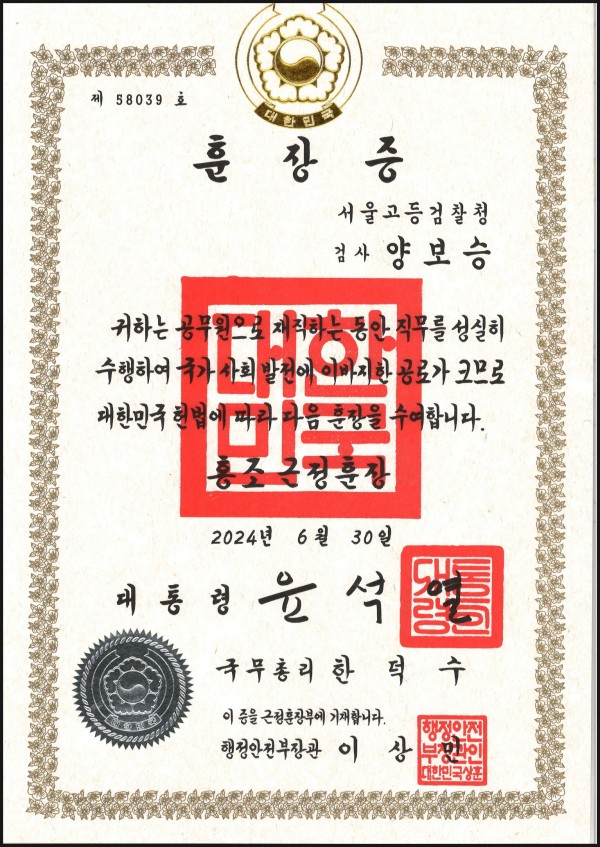 대한민국
제 58039 호
훈장증
서울고등검찰청
검사 양보승
귀하는 공무원으로 재직하는 동안 직무를 성실히
수행하여 국가 사회 발전에 이바지한 공로가 크므로
대한민국 헌법에 따라 다음 훈장을 수여합니다.
대한
민국
홍조근정훈장
2024년 6월 30일
대통령 윤석열
대통
령인
국무총리 한덕수
이 증을 근정훈장부에 기재합니다.
행정안전부장관 이상민
행정안전
부장관인
대한민국상훈